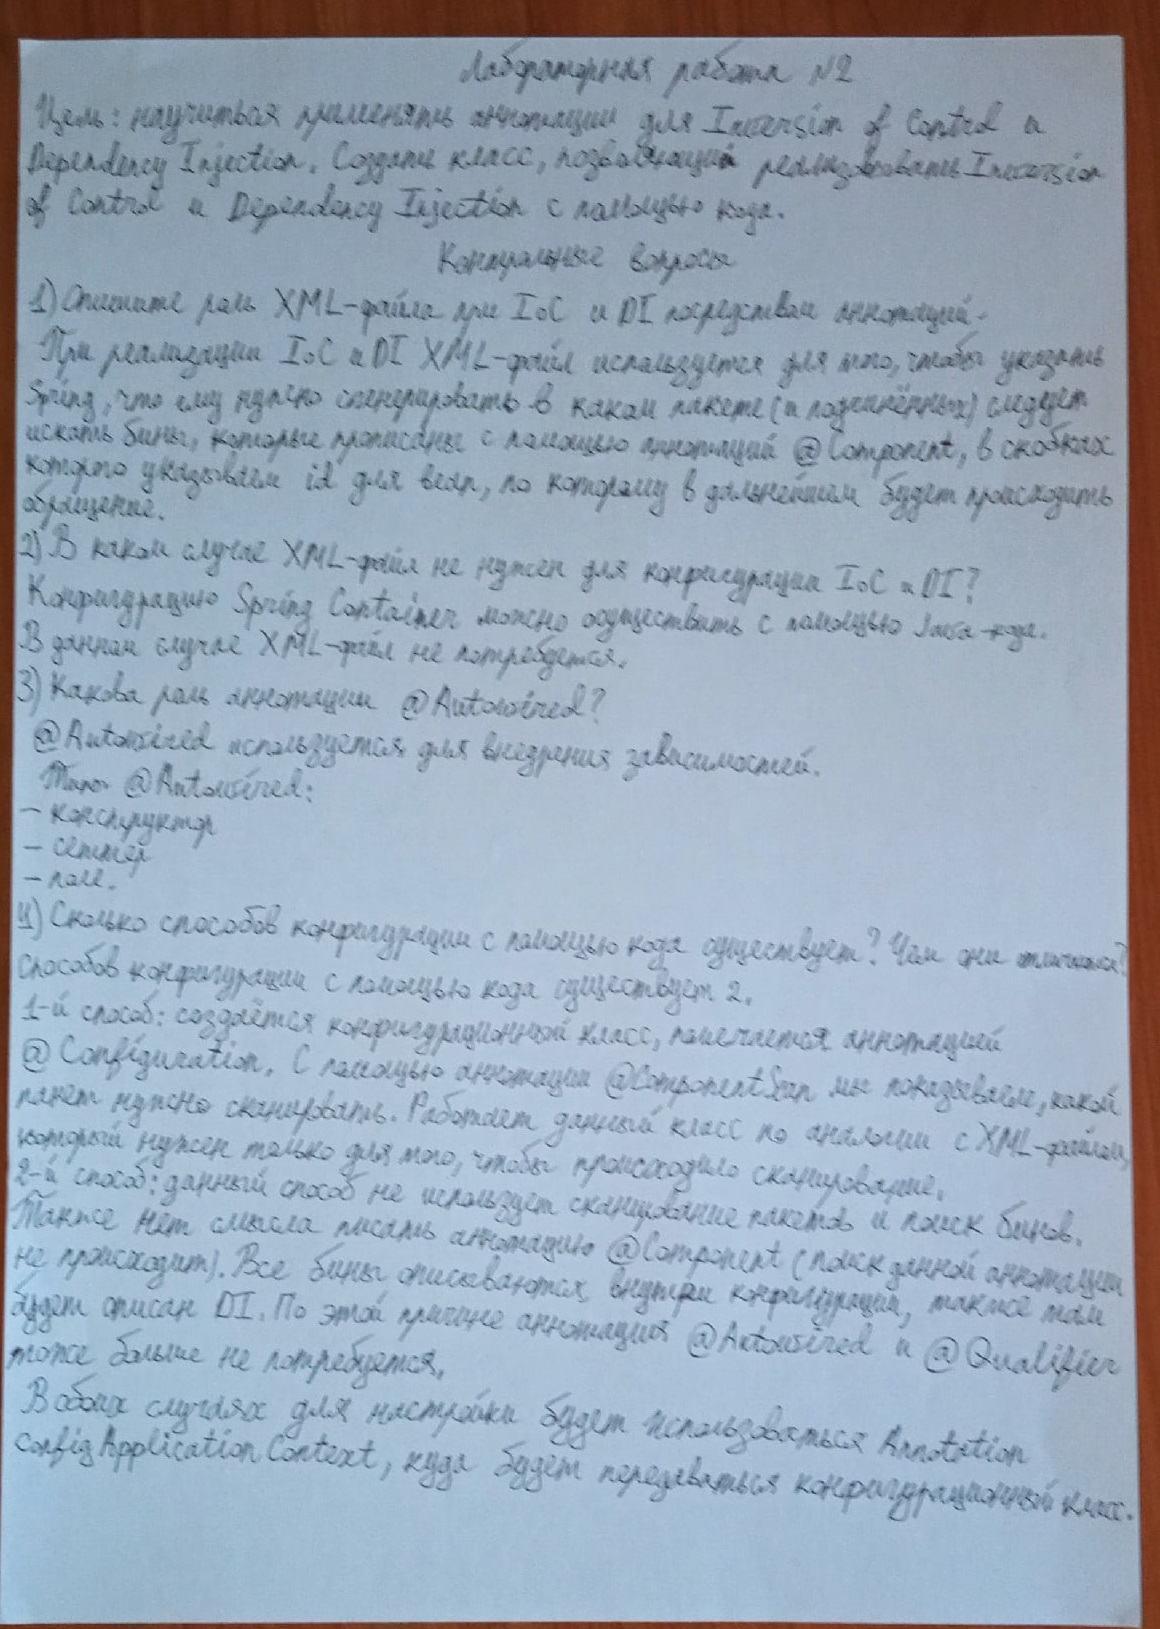 Лабораторная работа №2
Цель: научиться применять аннотации для Inversion of Control и
Dependency Injection. Создать класс, позволяющий реализовывать Inversion
of Control и Dependency Injection с помощью кода.
Контрольные вопросы
1) Опишите роль XML-файла при IoC и DI посредством аннотаций.
При реализации IoC и DI XML-файл используется для того, чтобы указать
Spring, что ему нужно сгенерировать в каком пакете (и подчинённых) следует
искать бины, которые прописаны с помощью аннотаций @Component, в скобках
которого указываем id для bean, по которому в дальнейшем будет происходить
обращение.
2) В каком случае XML-файл не нужен для конфигурации IoC и DI?
Конфигурацию Spring Container можно осуществить с помощью Java-кода.
В данном случае XML-файл не потребуется.
3) Какова роль аннотации @Autowired?
@Autowired используется для внедрения зависимостей.
Типы @Autowired:
– конструктор
– сеттер
– поле.
4) Сколько способов конфигурации с помощью кода существует? Чем они отличаются?
Способов конфигурации с помощью кода существует 2.
1-й способ: создаётся конфигурационный класс, помечается аннотацией
@Configuration. С помощью аннотации @ComponentScan мы показываем, какой
пакет нужно сканировать. Работает данный класс по аналогии с XML-файлом,
который нужен только для того, чтобы происходило сканирование.
2-й способ: данный способ не использует сканирование пакетов и поиск бинов.
Также нет смысла писать аннотацию @Component (поиск данной аннотации
не происходит). Все бины описываются внутри конфигурации, также там
будет описан DI. По этой причине аннотация @Autowired и @Qualifier
тоже больше не потребуется.
В обоих случаях для настройки будет использоваться Annotation
Config Application Context, куда будет передаваться конфигурационный класс.